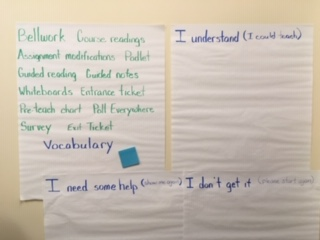 Bellwork Course readings
Assignment modifications Padlet
Guided reading Guided notes
Whiteboards Entrance ticket
Pre-teach chart Poll Everywhere
Survey Exit Ticket
Vocabulary
I understand (I could teach)
I need some help
I don't get it